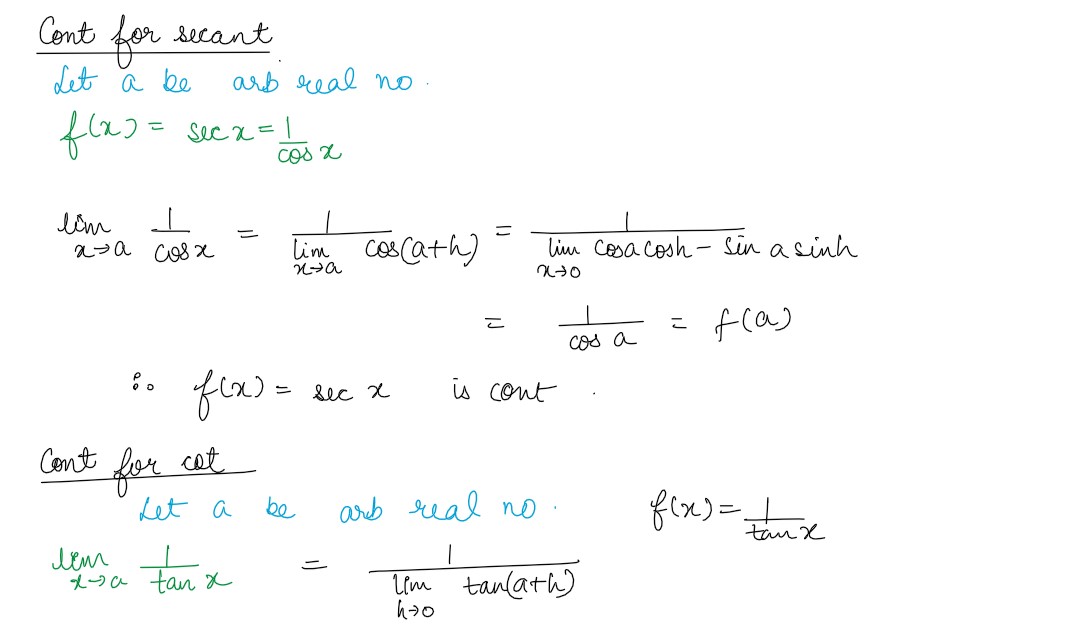 Cont for secant
Let a be arb real no.
f(x) = sec x = 1/cos x
lim x→a 1/cos x = 1/(lim x→a cos(a+h)) = 1/(lim x→0 cos a cos h − sin a sin h)
= 1/cos a = f(a)
∴ f(x) = sec x is cont.
Cont for cot
Let a be arb real no. f(x) = 1/tan x
lim x→a 1/tan x = 1/(lim h→0 tan(a+h))